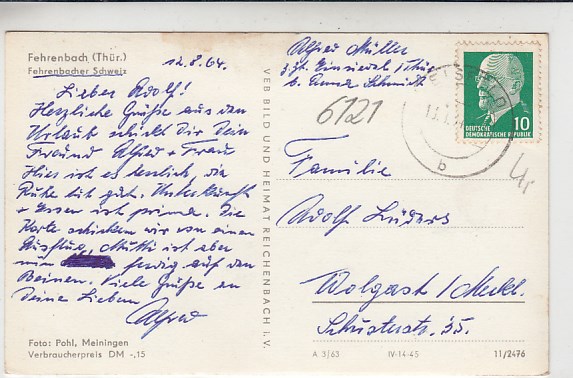 Fehrenbach (Thür.)
Fehrenbacher Schweiz
12.8.64.
Lieber Adolf!
Herzliche Grüße aus dem
Urlaub schickt Dir Dein
Freund Alfred + Frau
Hier ist es herrlich, die
Ruhe tut gut. Unterkunft
+ Essen ist prima. Die
Karte schicken wir von einem
Ausflug. Mutti ist aber
nun fertig auf den
Beinen. Viele Grüße an
Deine Lieben
Alfred
Foto: Pohl, Meiningen
Verbraucherpreis DM -,15
VEB BILD UND HEIMAT REICHENBACH i. V.
Alfred Müller
z.Zt. Einsiedel / Thür
b. Anna Schmidt
6121
10
DEUTSCHE
DEMOKRATISCHE REPUBLIK
EISFELD
b
Familie
Adolf Lüders
Wolgast / Meckl.
Schusterstr. 35.
A 3/63 IV-14-45 11/2476